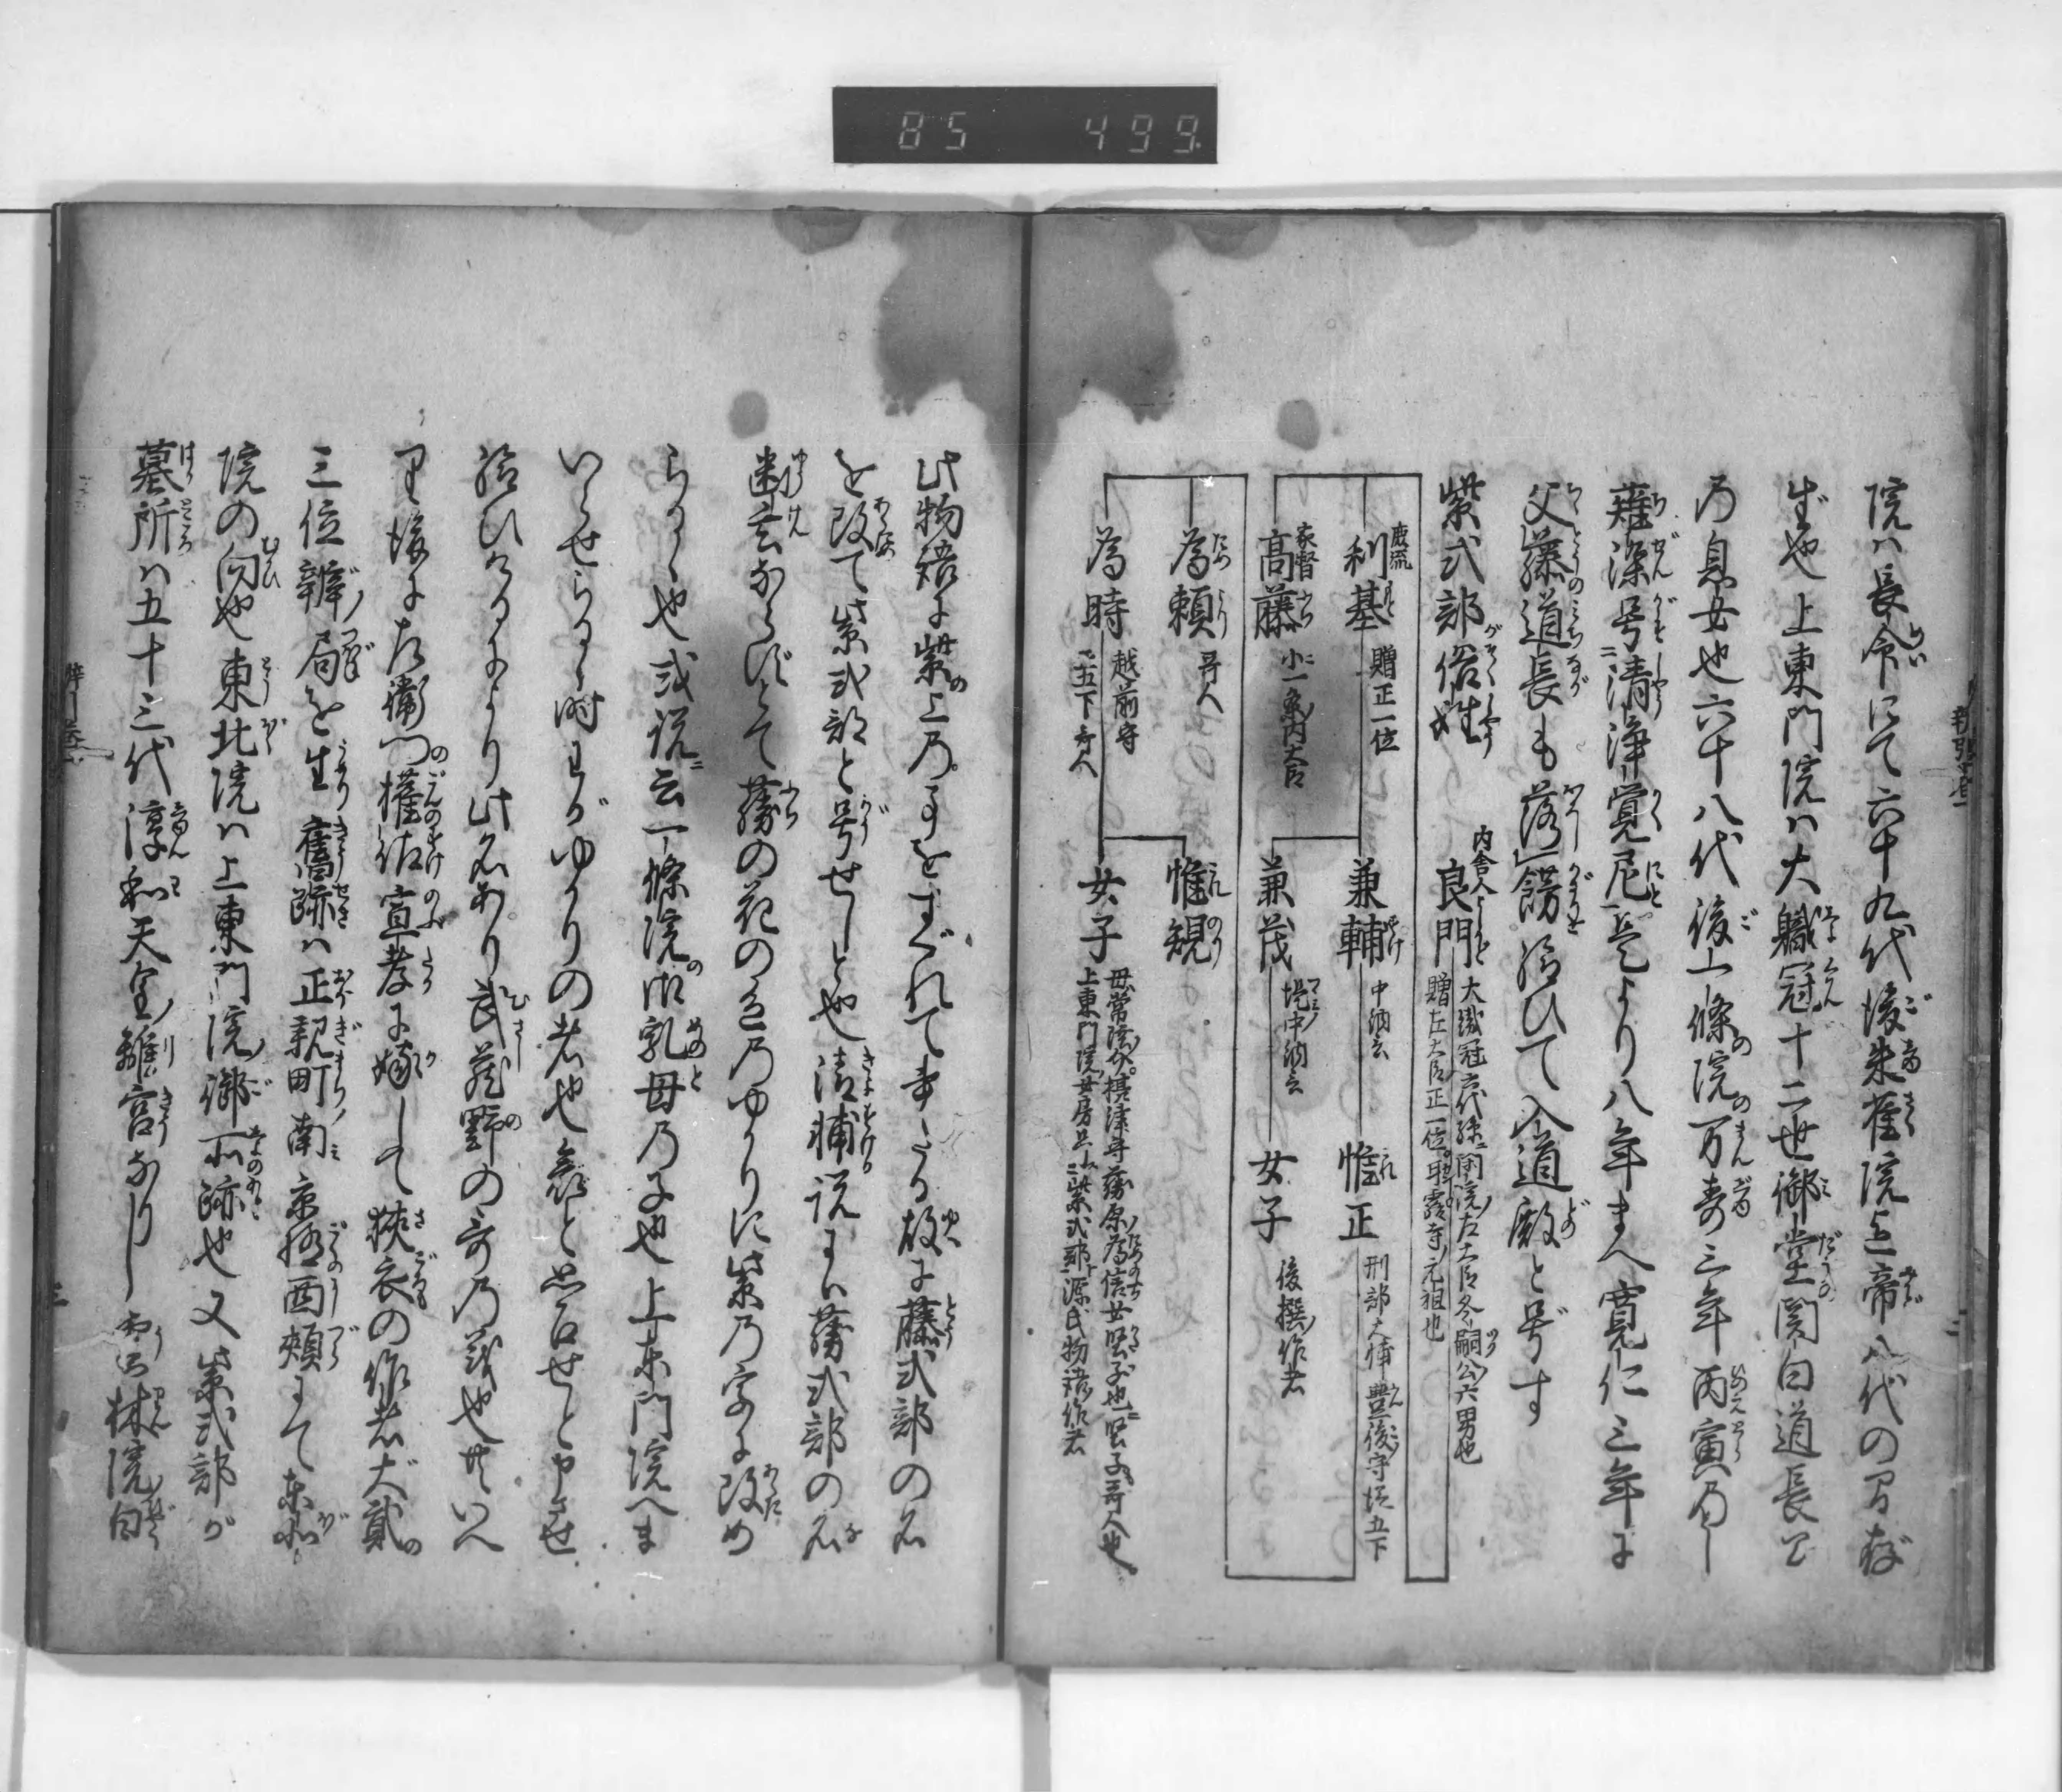 85 499
院ハ長命にて六十九代後朱雀院迄帝八代の間存
生也上東門院ハ大職冠十二世御堂関白道長公
乃息女也六十八代後一條院万寿三年丙寅乃
薙染号清浄覚尼是より八年まへ寛仁三年に
父藤道長も落餝給ひて入道殿と号す
紫式部俗姓
内舎人
良門
大職冠六代孫閑院左大臣冬嗣公六男也
贈左大臣正一位
元祖也
利基
贈正一位
兼輔
中納言
惟正
刑部大輔豊後守従五下
家督
高藤
小一條内大臣
兼茂
女子
後撰作者
為頼
哥人
惟規
為時
越前守
女子
母常陸介摂津守藤原為信女堅子也
上東門院女房
紫式部源氏物語作者
此物語に紫上乃事をすぐれて書たる故に藤式部の名
を改て紫式部と号せしと也清輔説にハ藤式部の名
幽玄ならずとて藤の花の色乃ゆかりに紫乃字に改め
らるゝ也或説云一條院の御乳母乃子也上東門院へま
いらせらるゝ時わがゆかりの者也哀と思召せと申させ
給ひけるにより此名あり武蔵野の哥乃義也共いへ
り後に左衛門権佐宣孝に嫁して狭衣の作者大貳
三位辨局を生舊跡ハ正親町南京極西頬にて東北
院の向也東北院ハ上東門院御所跡也又紫式部が
墓所ハ五十三代淳和天皇離宮なりし雲林院白
三